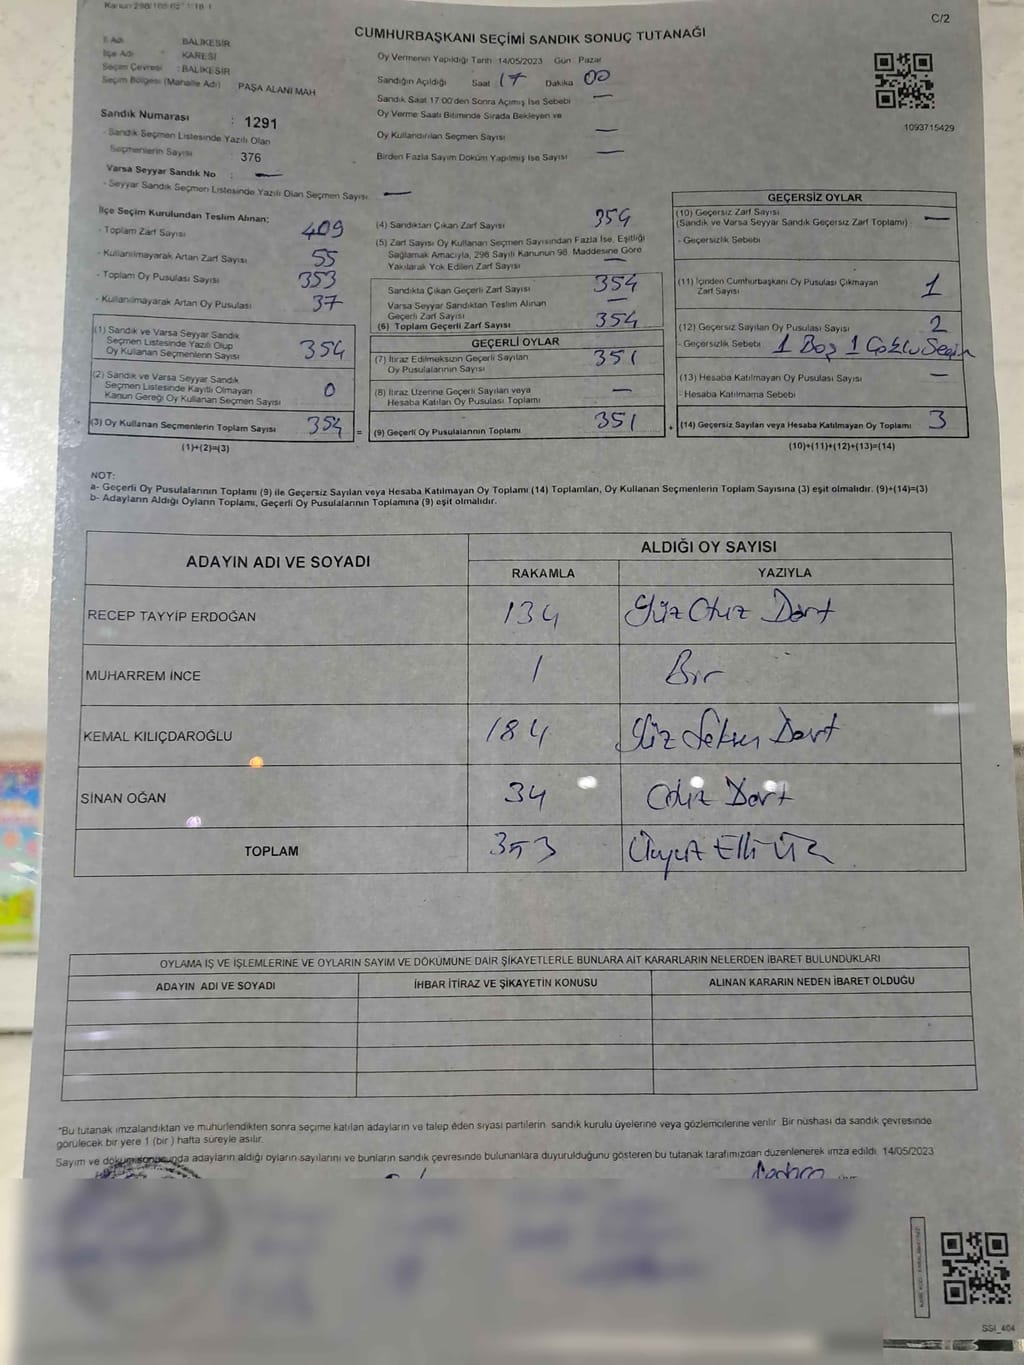 Kanun 298/105
C/2
CUMHURBAŞKANI SEÇİMİ SANDIK SONUÇ TUTANAĞI
İl Adı : BALIKESİR
İlçe Adı : KARESİ
Seçim Çevresi : BALIKESİR
Seçim Bölgesi (Mahalle Adı) PAŞA ALANI MAH
Sandık Numarası : 1291
- Sandık Seçmen Listesinde Yazılı Olan
Seçmenlerin Sayısı : 376
Varsa Seyyar Sandık No : —
- Seyyar Sandık Seçmen Listesinde Yazılı Olan Seçmen Sayısı: —
Oy Vermenin Yapıldığı Tarih 14/05/2023 Gün Pazar
Sandığın Açıldığı Saat 17 Dakika 00
Sandık Saat 17:00'den Sonra Açılmış İse Sebebi —
Oy Verme Saati Bitiminde Sırada Bekleyen ve
Oy Kullandırılan Seçmen Sayısı —
Birden Fazla Sayım Döküm Yapılmış İse Sayısı —
1093715429
İlçe Seçim Kurulundan Teslim Alınan;
- Toplam Zarf Sayısı 409
- Kullanılmayarak Artan Zarf Sayısı 55
- Toplam Oy Pusulası Sayısı 353
- Kullanılmayarak Artan Oy Pusulası 37
(1) Sandık ve Varsa Seyyar Sandık
Seçmen Listesinde Yazılı Olup
Oy Kullanan Seçmenlerin Sayısı 354
(2) Sandık ve Varsa Seyyar Sandık
Seçmen Listesinde Kayıtlı Olmayan
Kanun Gereği Oy Kullanan Seçmen Sayısı 0
(3) Oy Kullanan Seçmenlerin Toplam Sayısı 354 =
(1)+(2)=(3)
(4) Sandıktan Çıkan Zarf Sayısı 354
(5) Zarf Sayısı Oy Kullanan Seçmen Sayısından Fazla İse, Eşitliği
Sağlamak Amacıyla, 298 Sayılı Kanunun 98. Maddesine Göre
Yakılarak Yok Edilen Zarf Sayısı —
Sandıkta Çıkan Geçerli Zarf Sayısı 354
Varsa Seyyar Sandıktan Teslim Alınan
Geçerli Zarf Sayısı —
(6) Toplam Geçerli Zarf Sayısı 354
GEÇERLİ OYLAR
(7) İtiraz Edilmeksizin Geçerli Sayılan
Oy Pusulasının Sayısı 351
(8) İtiraz Üzerine Geçerli Sayılan veya
Hesaba Katılan Oy Pusulası Toplamı —
(9) Geçerli Oy Pusulalarının Toplamı 351 +
GEÇERSİZ OYLAR
(10) Geçersiz Zarf Sayısı
(Sandık ve Varsa Seyyar Sandık Geçersiz Zarf Toplamı) —
- Geçersizlik Sebebi
(11) İçinden Cumhurbaşkanı Oy Pusulası Çıkmayan
Zarf Sayısı 1
(12) Geçersiz Sayılan Oy Pusulası Sayısı 2
- Geçersizlik Sebebi 1 Boş 1 Çoklu Seçim
(13) Hesaba Katılmayan Oy Pusulası Sayısı —
- Hesaba Katılmama Sebebi
(14) Geçersiz Sayılan veya Hesaba Katılmayan Oy Toplamı 3
(10)+(11)+(12)+(13)=(14)
NOT:
a- Geçerli Oy Pusulalarının Toplamı (9) ile Geçersiz Sayılan veya Hesaba Katılmayan Oy Toplamı (14) Toplamları, Oy Kullanan Seçmenlerin Toplam Sayısına (3) eşit olmalıdır. (9)+(14)=(3)
b- Adayların Aldığı Oyların Toplamı, Geçerli Oy Pusulalarının Toplamına (9) eşit olmalıdır.
ADAYIN ADI VE SOYADI ALDIĞI OY SAYISI
RAKAMLA YAZIYLA
RECEP TAYYİP ERDOĞAN 134 Yüz Otuz Dört
MUHARREM İNCE 1 Bir
KEMAL KILIÇDAROĞLU 184 Yüz Seksen Dört
SİNAN OĞAN 34 Otuz Dört
TOPLAM 353 Üçyüz Elli Üç
OYLAMA İŞ VE İŞLEMLERİNE VE OYLARIN SAYIM VE DÖKÜMÜNE DAİR ŞİKAYETLERLE BUNLARA AİT KARARLARIN NELERDEN İBARET BULUNDUKLARI
ADAYIN ADI VE SOYADI İHBAR İTİRAZ VE ŞİKAYETİN KONUSU ALINAN KARARIN NEDEN İBARET OLDUĞU
"Bu tutanak imzalandıktan ve mühürlendikten sonra seçime katılan adayların ve talep eden siyasi partilerin sandık kurulu üyelerine veya gözlemcilerine verilir. Bir nüshası da sandık çevresinde
görülecek bir yere 1 (bir) hafta süreyle asılır.
Sayım ve döküm sonucunda adayların aldığı oyların sayılarını ve bunların sandık çevresinde bulunanlara duyurulduğunu gösteren bu tutanak tarafımızdan düzenlenerek imza edildi. 14/05/2023
SSI_404